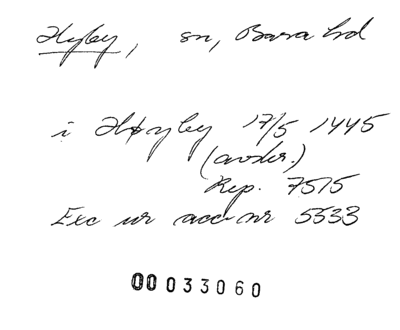 Hyby, sn, Bara hd
i Høyby 17/5 1445
(avskr.)
Rep. 7515
Exc ur acc nr 5533
00033060